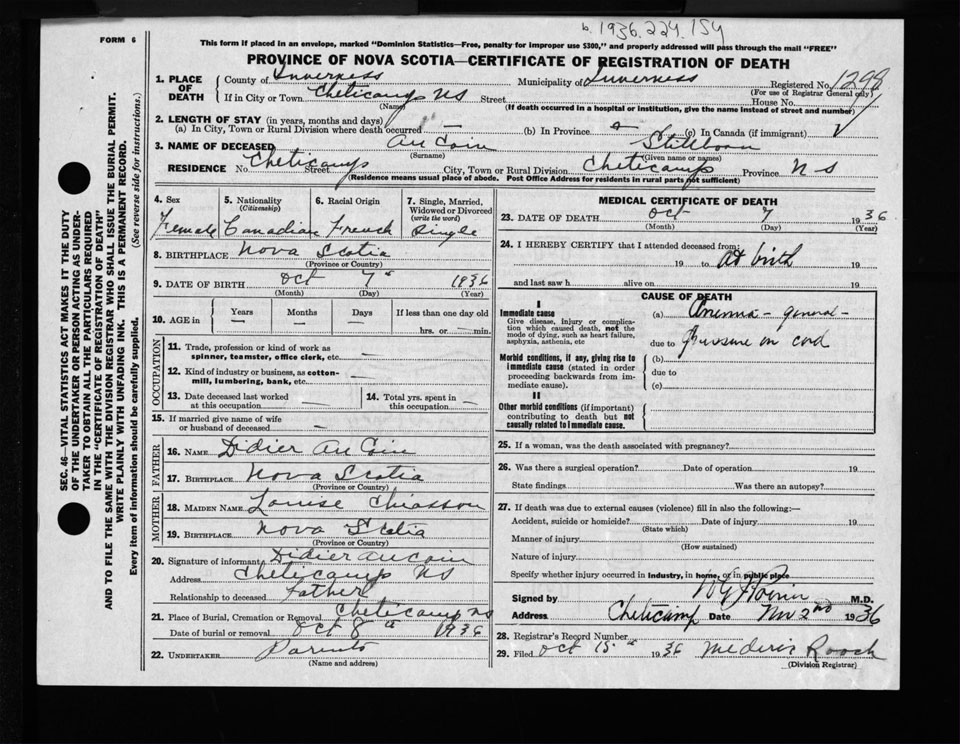 b. 1936.224.154
FORM 6
This form if placed in an envelope, marked "Dominion Statistics—Free, penalty for improper use $300," and properly addressed will pass through the mail "FREE"
PROVINCE OF NOVA SCOTIA—CERTIFICATE OF REGISTRATION OF DEATH
1. PLACE OF DEATH County of Inverness Municipality of Inverness Registered No. 1298
(For use of Registrar General only)
If in City or Town Cheticamp NS Street House No.
(Name) (If death occurred in a hospital or institution, give the name instead of street and number)
2. LENGTH OF STAY (in years, months and days)
(a) In City, Town or Rural Division where death occurred — (b) In Province (c) In Canada (if immigrant)
3. NAME OF DECEASED AuCoin Stillborn
(Surname) (Given name or names)
RESIDENCE No. Cheticamp Street City, Town or Rural Division Cheticamp Province NS
(Residence means usual place of abode. Post Office Address for residents in rural parts not sufficient)
4. Sex 5. Nationality (Citizenship) 6. Racial Origin 7. Single, Married, Widowed or Divorced (write the word)
Female Canadian French Single
8. BIRTHPLACE Nova Scotia
(Province or Country)
9. DATE OF BIRTH Oct 7th 1936
(Month) (Day) (Year)
10. AGE in Years Months Days If less than one day old
— — — hrs. or — min.
OCCUPATION
11. Trade, profession or kind of work as spinner, teamster, office clerk, etc. —
12. Kind of industry or business, as cotton-mill, lumbering, bank, etc. —
13. Date deceased last worked at this occupation — 14. Total yrs. spent in this occupation —
15. If married give name of wife or husband of deceased —
FATHER
16. NAME Didier AuCoin
17. BIRTHPLACE Nova Scotia
(Province or Country)
MOTHER
18. MAIDEN NAME Louise Chiasson
19. BIRTHPLACE Nova Scotia
(Province or Country)
20. Signature of informant Didier AuCoin
Address Cheticamp NS
Relationship to deceased Father
21. Place of Burial, Cremation or Removal Cheticamp NS
Date of burial or removal Oct 8th 1936
22. UNDERTAKER Parents
(Name and address)
MEDICAL CERTIFICATE OF DEATH
23. DATE OF DEATH Oct 7 1936
(Month) (Day) (Year)
24. I HEREBY CERTIFY that I attended deceased from:
19 to at birth 19
and last saw h alive on 19
CAUSE OF DEATH
I
Immediate cause
Give disease, injury or complication which caused death, not the mode of dying, such as heart failure, asphyxia, asthenia, etc
(a) Anemia - general -
due to Pressure on cord
Morbid conditions, if any, giving rise to immediate cause (stated in order proceeding backwards from immediate cause).
(b)
due to
(c)
II
Other morbid conditions (if important) contributing to death but not causally related to immediate cause.
25. If a woman, was the death associated with pregnancy?
26. Was there a surgical operation? Date of operation 19
State findings Was there an autopsy?
27. If death was due to external causes (violence) fill in also the following:—
Accident, suicide or homicide? Date of injury 19
(State which)
Manner of injury
(How sustained)
Nature of injury
Specify whether injury occurred in industry, in home, or in public place
Signed by Poirier M.D.
Address Cheticamp Date Nov 2nd 1936
28. Registrar's Record Number
29. Filed Oct 15th 1936 Mederic Roach
(Division Registrar)
SEC. 46—VITAL STATISTICS ACT MAKES IT THE DUTY
OF THE UNDERTAKER OR PERSON ACTING AS UNDER-
TAKER TO OBTAIN ALL THE PARTICULARS REQUIRED
IN THE "CERTIFICATE OF REGISTRATION OF DEATH"
AND TO FILE THE SAME WITH THE DIVISION REGISTRAR WHO SHALL ISSUE THE BURIAL PERMIT.
WRITE PLAINLY WITH UNFADING INK. THIS IS A PERMANENT RECORD.
Every item of information should be carefully supplied. (See reverse side for instructions.)